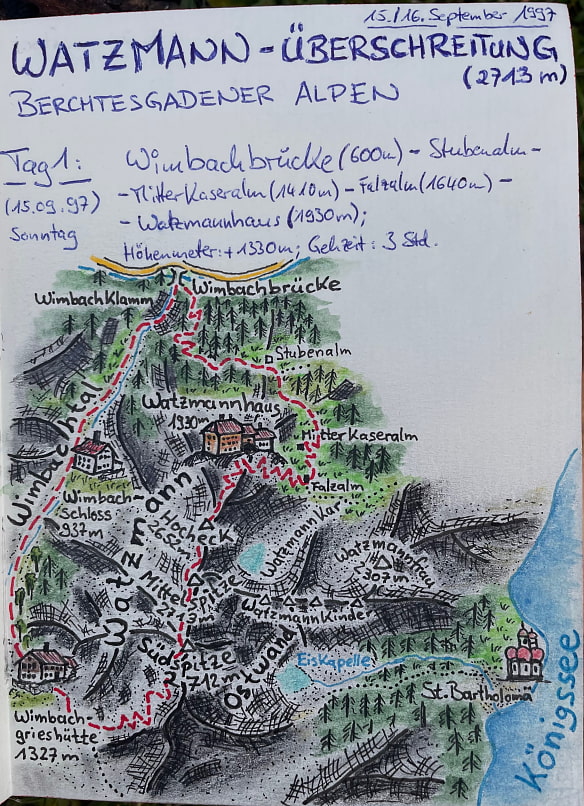 15./16. September 1997
WATZMANN-ÜBERSCHREITUNG
(2713 m)
BERCHTESGADENER ALPEN
Tag 1: Wimbachbrücke (600m) - Stubenalm -
(15.09.97) - Mitterkaseralm (1410m) - Falzalm (1640m) -
Sonntag - Watzmannhaus (1930m);
Höhenmeter: + 1330m; Gehzeit: 3 Std.
Wimbachklamm
Wimbachbrücke
Stubenalm
Watzmannhaus
1930m
Mitterkaseralm
Falzalm
Wimbachtal
Wimbach-
schloss
937m
Watzmann
Hocheck
2652m
Watzmannkar
Watzmannfrau
2307m
Mittelspitze
2713m
Watzmann Kinder
Südspitze
2712m
Ostwand
Eiskapelle
St. Bartholomä
Königssee
Wimbach-
grieshütte
1327m